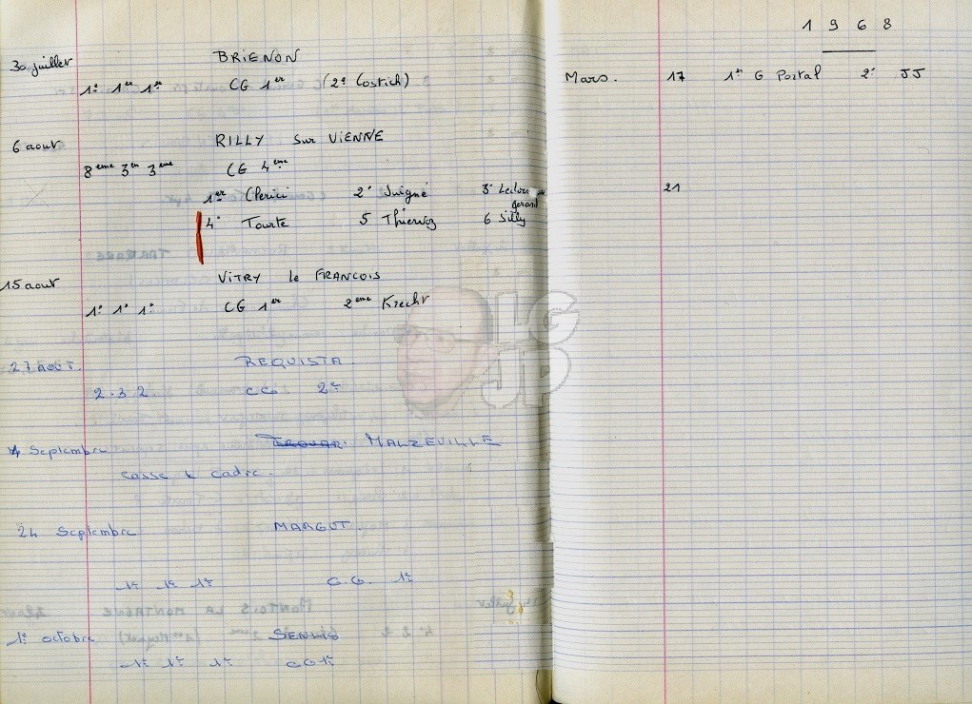 30 juillet BRIENON
1° 1er 1er CG 1er (2e Costich)
6 aout RILLY sur VIENNE
8eme 3em 3eme CG 4eme
1er Clerici 2° Juigné 3°
4° Tourte 5 6 Silly
15 aout VITRY le FRANCOIS
1° 1° 1° CG 1er 2eme Krecht
27 AOÛT. REQUISTA.
2.3.2. CG 2e
4 Septembre MALZEVILLE
casse le cadre.
24 Septembre MARGUT.
1e 1e 1e C.G. 1e
1e octobre SENLIS
1e 1e 1e CG 1e
1968
Mars. 17 1er G Portal 2° JJ
21
LG
JP